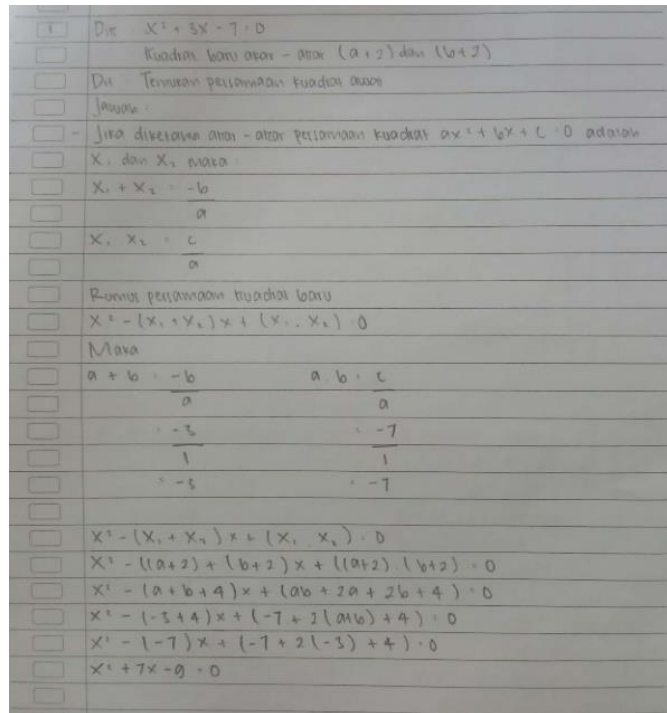 1 Dik X² + 3X - 7 = 0
Kuadrat baru akar - akar (a+2) dan (b+2)
Dit Temukan persamaan kuadrat
Jawab :
- Jika diketahui akar - akar persamaan kuadrat ax² + bx + c = 0 adalah
X₁ dan X₂ maka
X₁ + X₂ = -b
a
X₁ X₂ = c
a
Rumus persamaan kuadrat baru
X² - (X₁ + X₂) x + (X₁ . X₂) = 0
Maka
a + b = -b a . b = c
a a
= -3 = -7
1 1
= -3 = -7
X² - (X₁ + X₂) x + (X₁ X₂) = 0
X² - ((a+2) + (b+2) x + ((a+2) . (b+2) = 0
X² - (a + b + 4) x + (ab + 2a + 2b + 4) = 0
X² - (-3 + 4) x + (-7 + 2(a+b) + 4) = 0
X² - (-7) x + (-7 + 2(-3) + 4) = 0
X² + 7x - 9 = 0